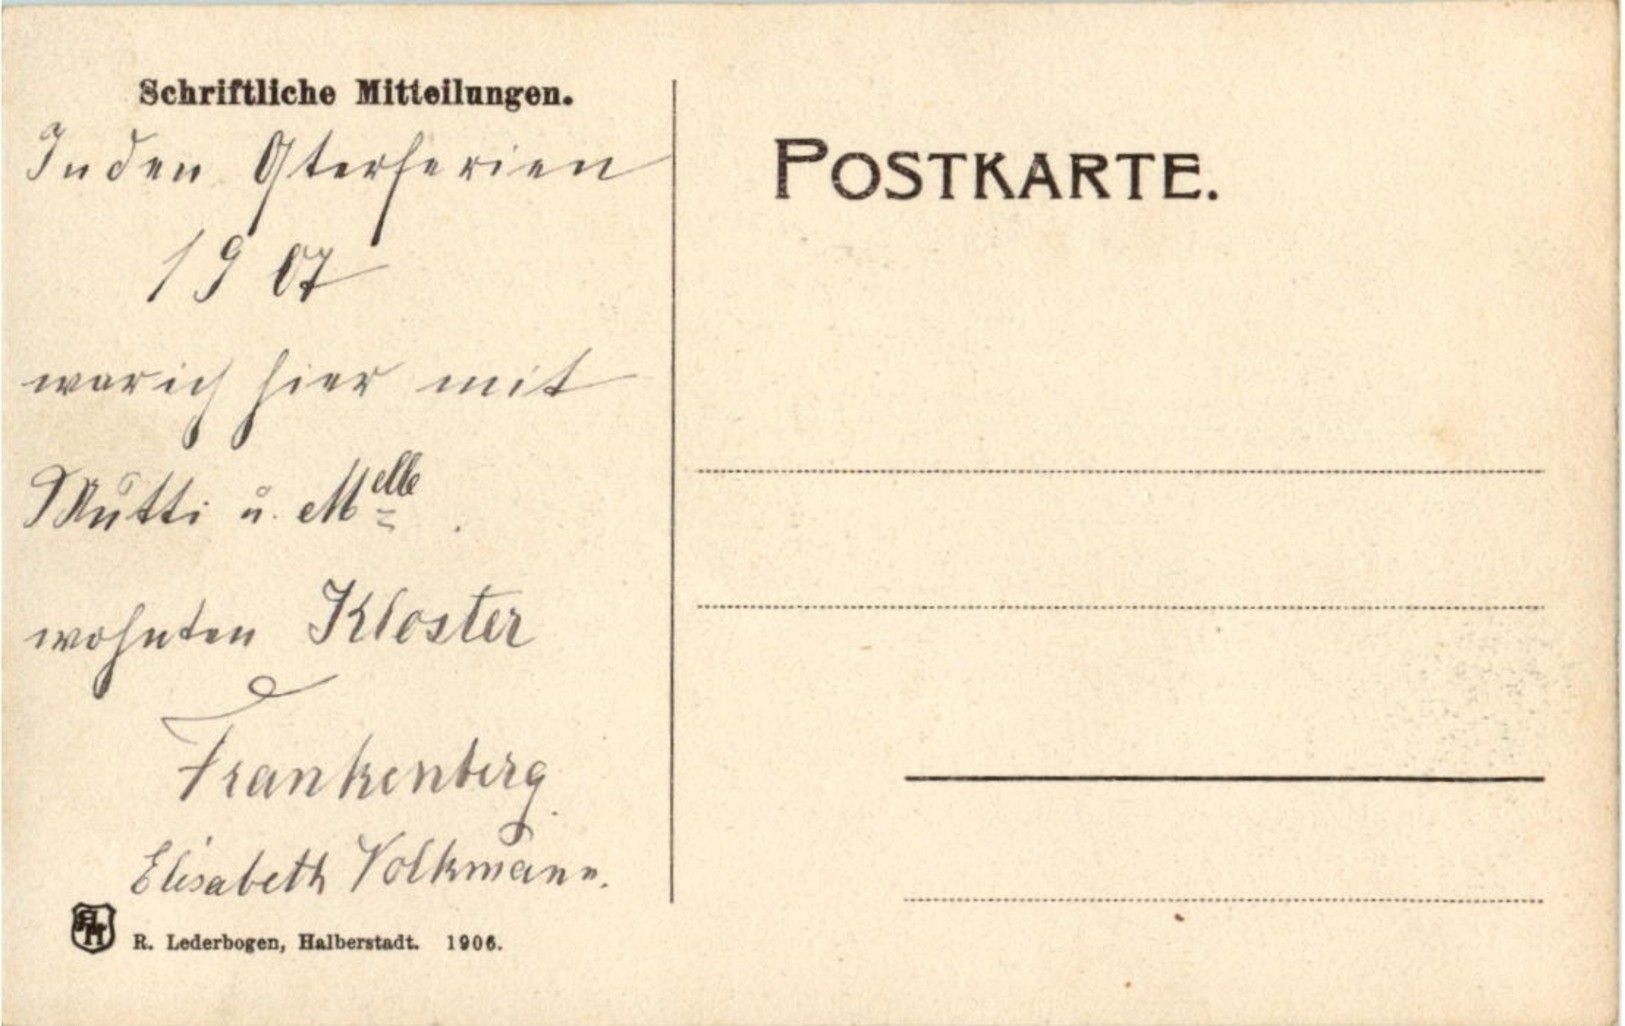 Schriftliche Mitteilungen.
In den Osterferien
1907
war ich hier mit
Mutti u. Melle
wohnten Kloster
Frankenberg
Elisabeth Volkmann.
R. Lederbogen, Halberstadt. 1906.
POSTKARTE.